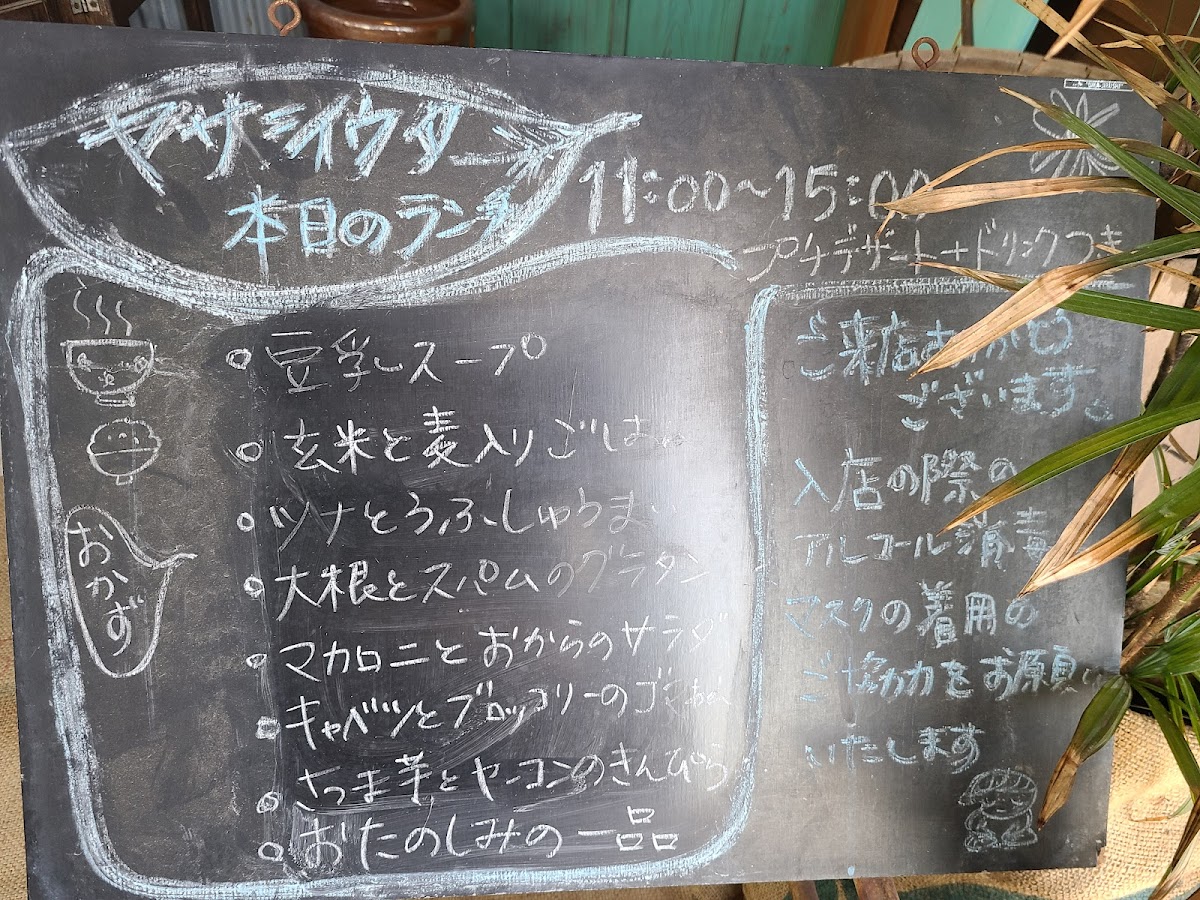 ヤサシイウタ
本日のランチ
11:00~15:00
プチデザート+ドリンクつき
豆乳スープ
玄米と麦入りごはん
おかず
ツナとうふしゅうまい
大根とスパムのグラタン
マカロニとおからのサラダ
キャベツとブロッコリーのゴマあえ
さつま芋とヤーコンのきんぴら
おたのしみの一品
ご来店ありがとう
ございます。
入店の際の
アルコール消毒
マスクの着用の
ご協力をお願い
いたします